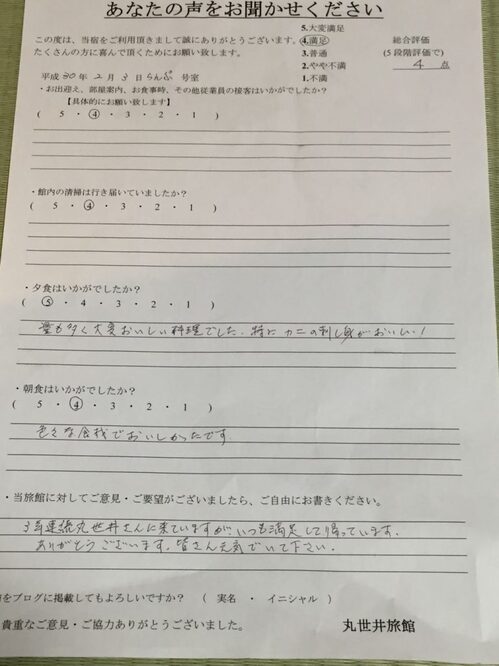 あなたの声をお聞かせください
この度は、当宿をご利用頂きまして誠にありがとうございます。
たくさんの方に喜んで頂くためにお願い致します。
5.大変満足
4.満足
3.普通
2.やや不満
1.不満
総合評価
(5段階評価で)
4 点
平成 30 年 2 月 3 日 らんぷ 号室
・お出迎え、部屋案内、お食事時、その他従業員の接客はいかがでしたか？
【具体的にお願い致します】
( 5 ・ 4 ・ 3 ・ 2 ・ 1 )
・館内の清掃は行き届いていましたか？
( 5 ・ 4 ・ 3 ・ 2 ・ 1 )
・夕食はいかがでしたか？
( 5 ・ 4 ・ 3 ・ 2 ・ 1 )
量も多く大変おいしい料理でした。特にカニの刺し身がおいしい！
・朝食はいかがでしたか？
( 5 ・ 4 ・ 3 ・ 2 ・ 1 )
色々な食材でおいしかったです。
・当旅館に対してご意見・ご要望がございましたら、ご自由にお書きください。
3年連続丸世井さんに来ていますが、いつも満足して帰っています。
ありがとうございます。皆さん元気でいて下さい。
をブログに掲載してもよろしいですか？ ( 実名 ・ イニシャル )
貴重なご意見・ご協力ありがとうございました。
丸世井旅館